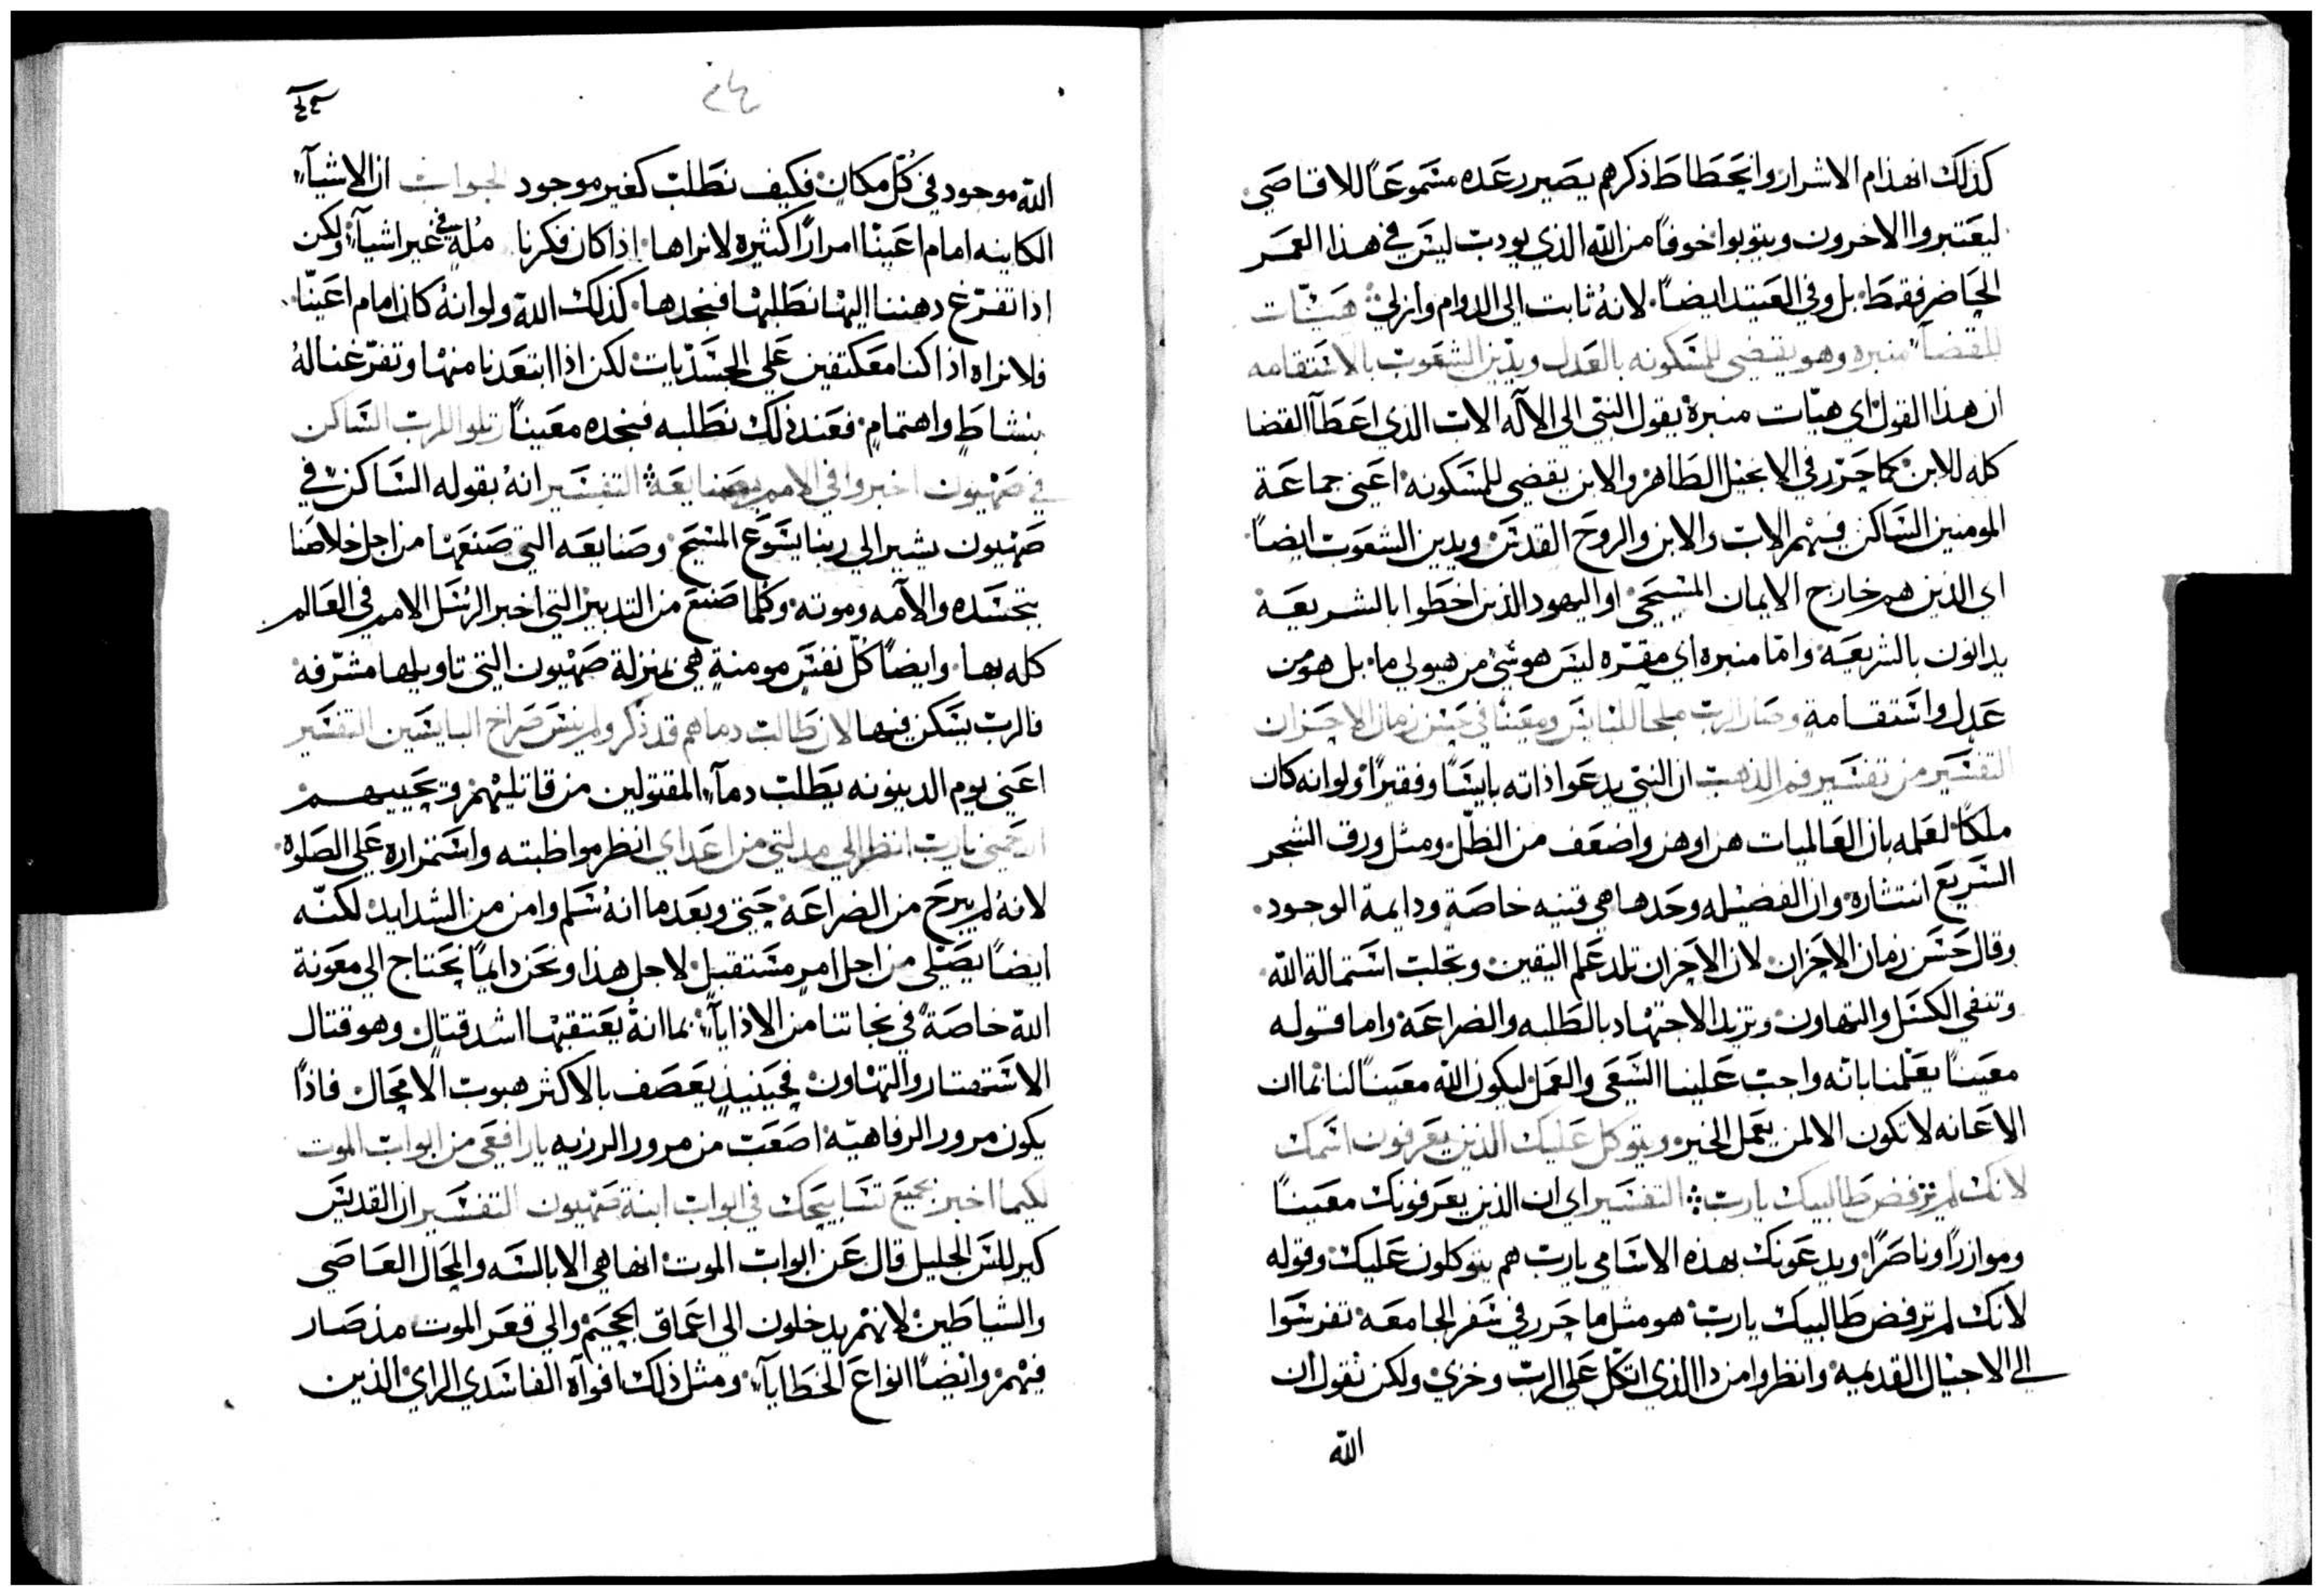 كذلك انهذام الاشرار وانحطاط ذكرهم يصير رعده مسموعاً للاقاصي
ليعتبروا الاخرون ويتوبوا خوفاً من الله الذي يودب ليس في هذا العمر
الحاضر فقط بل وفي العتيد ايضاً لانهُ ثابت الى الدوام وازلي هيّات
للقضاء منبره وهو يقضي للمسكونه بالعدل ويدين الشعوب بالاستقامه
ان هذا القول اي هيّات منبره يقول النبي الى الآله الاب الذي اعطآ القضا
كله للابن كما حرّر في الانجيل الطاهر والابن يقضي للمسكونه اعني جماعة
المومنين الساكن فيهم الاب والابن والروح القدس ويدين الشعوب ايضاً
اي الذين هم خارج الايمان المسيحي او اليهود الذين اخطوا بالشريعة
يدانون بالشريعه وامّا منبره اي مقرّه ليس هو شي من هيولى ما بل هو من
عدل واستقامة وصار الرب ملجآ للبايس ومعيناً في حسن زمان الاحزان
التفسير من تفسير فم الذهب ان النبي يدعوا ذاته بايساً وفقيراً ولو انه كان
ملكاً لعلمه بان العالميات هن اوهن واضعف من الظلّ ومثل ورق الشجر
السريع انتثاره وان الفضيله وحدها هي قنيه خاصة ودايمة الوجود
وقال حسن زمان الاحزان لان الاحزان تلد علم اليقين وتجلب استمالة الله
وتنفي الكسل والتهاون وتزيد الاجتهاد بالطلبه والضراعة واما قوله
معيناً يعلّمنا بانّه واجب علينا السعي والعمل ليكون الله معيناً لنا بما ان
الاعانه لا تكون الا لمن يعمل الخير ويتوكل عليك الذين يعرفون اسمك
لانك لم ترفض طالبيك يارب التفسير اي ان الذين يعرفونك معيناً
وموازراً وناصراً ويدعونك بهذه الاسامي يارب هم يتوكلون عليك وقوله
لانك لم ترفض طالبيك يارب هو مثل ما حرر في سفر الجامعه تفرسوا
الى الاجيال القديمه وانظروا من دا الذي اتكل على الرب وخزي ولكن نقول ان
الله
الله موجود في كل مكان فكيف نطلب كغير موجود الجواب ان الاشيآء
الكاينه امام اعيننا امراراً كثيره لا نراها اذا كان فكرنا مُلهٍ في غير اشيآء ولكن
اذا تفرّغ دهننا اليها نطلبها فنجدها كذلك الله ولو انهُ كان امام اعيننا
فلا نراه اذا كنا معكتفين على الجسديات لكن اذا ابتعدنا منها وتفرّغنا لهُ
بنشاطٍ واهتمامٍ فعند ذلك نطلبه فنجده معيناً رتلوا للرب الساكن
في صهيون اخبروا في الامم بصنايعه التفسير انهُ بقوله الساكن في
صهيون يشير الى ربنا يسوع المسيح وصنايعه التي صنعها من اجل خلاصنا
بتجسده والآمه وموته وكلما صنع من التدبير التي اخبر الرسل الامم في العالم
كله بها وايضاً كلّ نفس مومنةٍ هي بمنزلة صهيون التي تاويلها مشرّفه
فالرب يسكن فيها لان طالب دماهم قد ذكر ولم ينس صراخ البايسين التفسير
اعني يوم الدينونه يطلب دمآء المقتولين من قاتليهم ويحييهم
ارحمني يارب انظر الى مذلتي من اعداي انظر مواظبته واستمراره على الصلوه
لانهُ لم يبرح من الضراعة حتى وبعدما انهُ سلم وامن من الشدايد لكنّه
ايضاً يصلي من اجل امرٍ مستقبل لاجل هذا ونحن دايماً نحتاج الى معونة
الله خاصةً في نجاتنا من الاذايآء بما انهُ يعتقبها اشد قتال وهو قتال
الاستهتار والتهاون فحينيذٍ يعصف بالاكثر هبوب الامحال فاذاً
يكون مرور الرفاهيّة اصعب من مرور الرزيه يا رافعي من ابواب الموت
لكيما اخبر بجميع تسابيحك في ابواب ابنة صهيون التفسير ان القديس
كيرللس الجليل قال عن ابواب الموت انها هي الابالسه والمحال العاصي
والشياطين لانهم يدخلون الى اعماق الجحيم والى قعر الموت مذ صار
فيهم وايضاً انواع الخطايآء ومثل ذلك افوآه الفاسدي الراي الذين